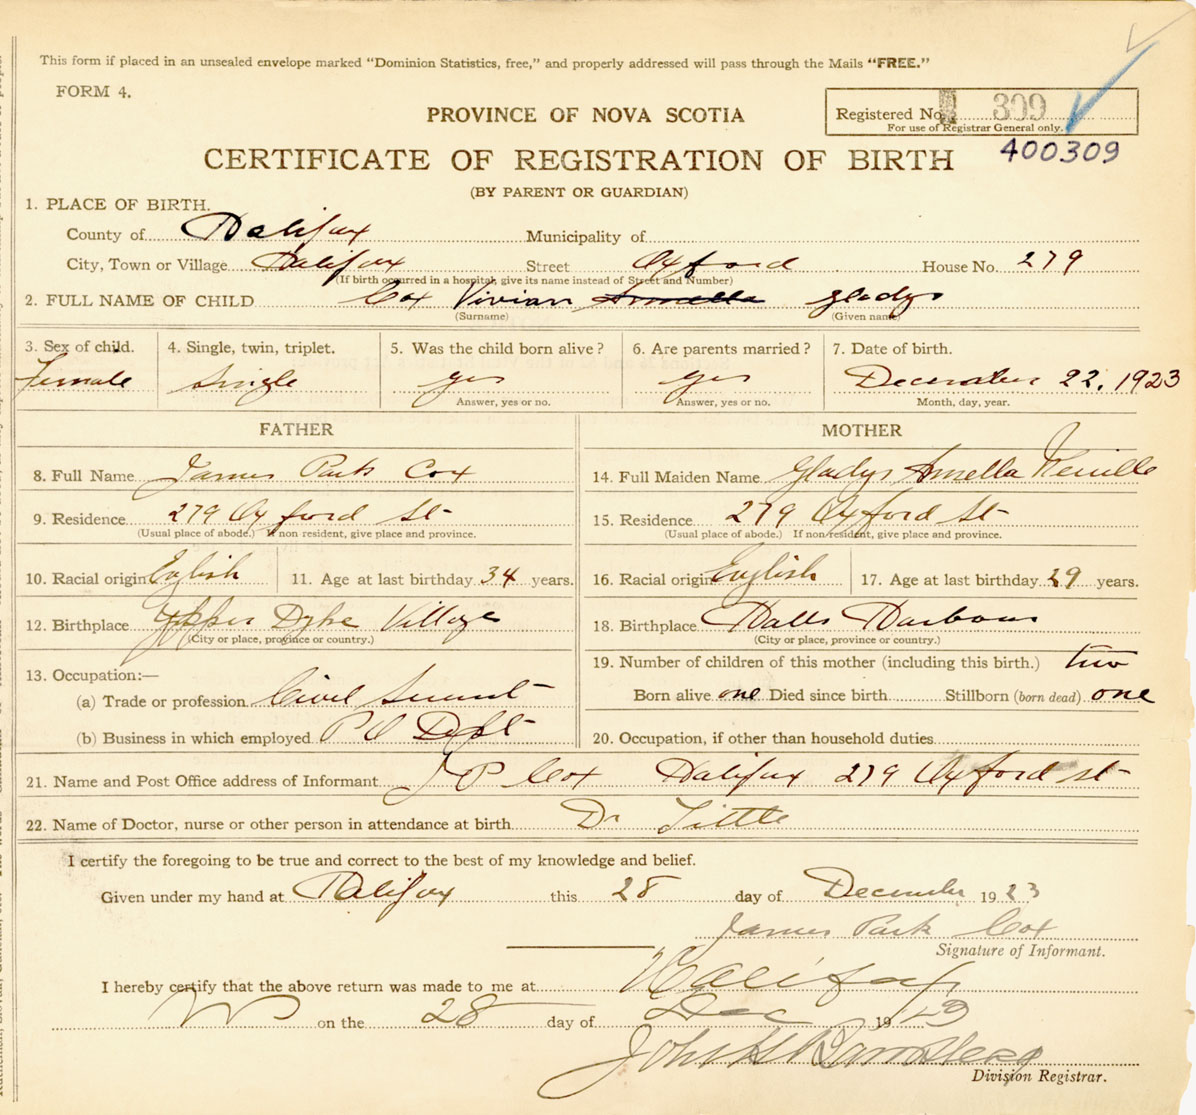 This form if placed in an unsealed envelope marked "Dominion Statistics, free," and properly addressed will pass through the Mails "FREE."
FORM 4.
PROVINCE OF NOVA SCOTIA
Registered No. 309
For use of Registrar General only.
CERTIFICATE OF REGISTRATION OF BIRTH 400309
(BY PARENT OR GUARDIAN)
1. PLACE OF BIRTH.
County of Halifax Municipality of
City, Town or Village Halifax Street Oxford House No. 279
(If birth occurred in a hospital, give its name instead of Street and Number)
2. FULL NAME OF CHILD Cox Vivian Annella Gladys
(Surname) (Given name)
3. Sex of child. 4. Single, twin, triplet. 5. Was the child born alive? 6. Are parents married? 7. Date of birth.
Female Single yes yes December 22. 1923
Answer, yes or no. Answer, yes or no. Month, day, year.
FATHER MOTHER
8. Full Name James Park Cox 14. Full Maiden Name Gladys Annella Neville
9. Residence 279 Oxford St 15. Residence 279 Oxford St
(Usual place of abode.) If non resident, give place and province. (Usual place of abode.) If non resident, give place and province.
10. Racial origin English 11. Age at last birthday 34 years. 16. Racial origin English 17. Age at last birthday 29 years.
12. Birthplace Upper Dyke Village 18. Birthplace Halls Harbour
(City or place, province or country.) (City or place, province or country.)
13. Occupation:— 19. Number of children of this mother (including this birth.) two
(a) Trade or profession Civil Servant Born alive one Died since birth Stillborn (born dead) one
(b) Business in which employed P O Dept 20. Occupation, if other than household duties
21. Name and Post Office address of Informant J P Cox Halifax 279 Oxford St
22. Name of Doctor, nurse or other person in attendance at birth Dr Tittle
I certify the foregoing to be true and correct to the best of my knowledge and belief.
Given under my hand at Halifax this 28 day of December 1923
James Park Cox
Signature of Informant.
I hereby certify that the above return was made to me at Halifax
on the 28 day of Dec 1923
John
Division Registrar.